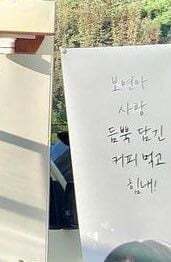 보연아
사랑
듬뿍 담긴
커피 먹고
힘내!